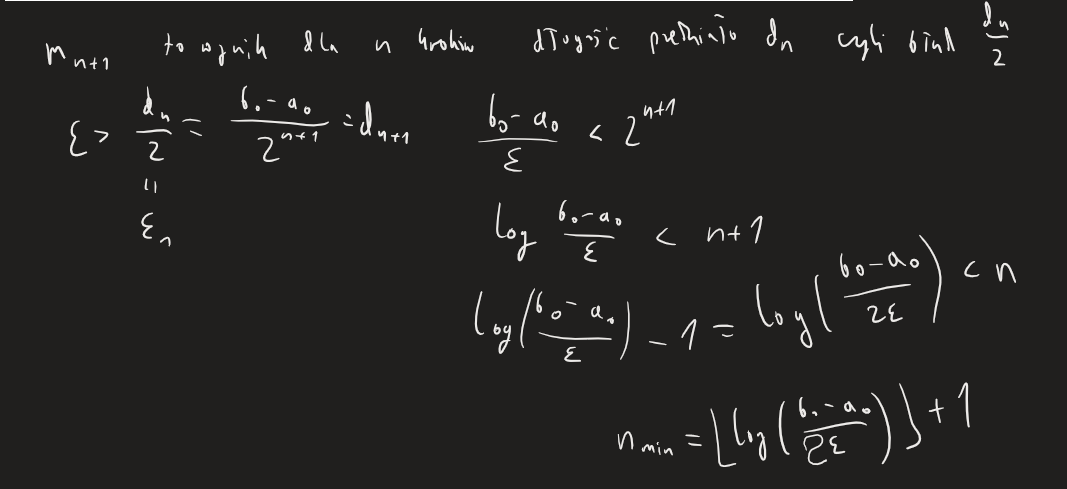 m_{n+1} to wynik dla n kroków długość przedziału d_n czyli błąd \frac{d_n}{2}
ε > \frac{d_n}{2} = \frac{b_0 - a_0}{2^{n+1}} = d_{n+1} \frac{b_0 - a_0}{ε} < 2^{n+1}
=
ε_n
log \frac{b_0 - a_0}{ε} < n+1
log(\frac{b_0 - a_0}{ε}) - 1 = log(\frac{b_0 - a_0}{2ε}) < n
n_{min} = ⌊log(\frac{b_0 - a_0}{2ε})⌋ + 1